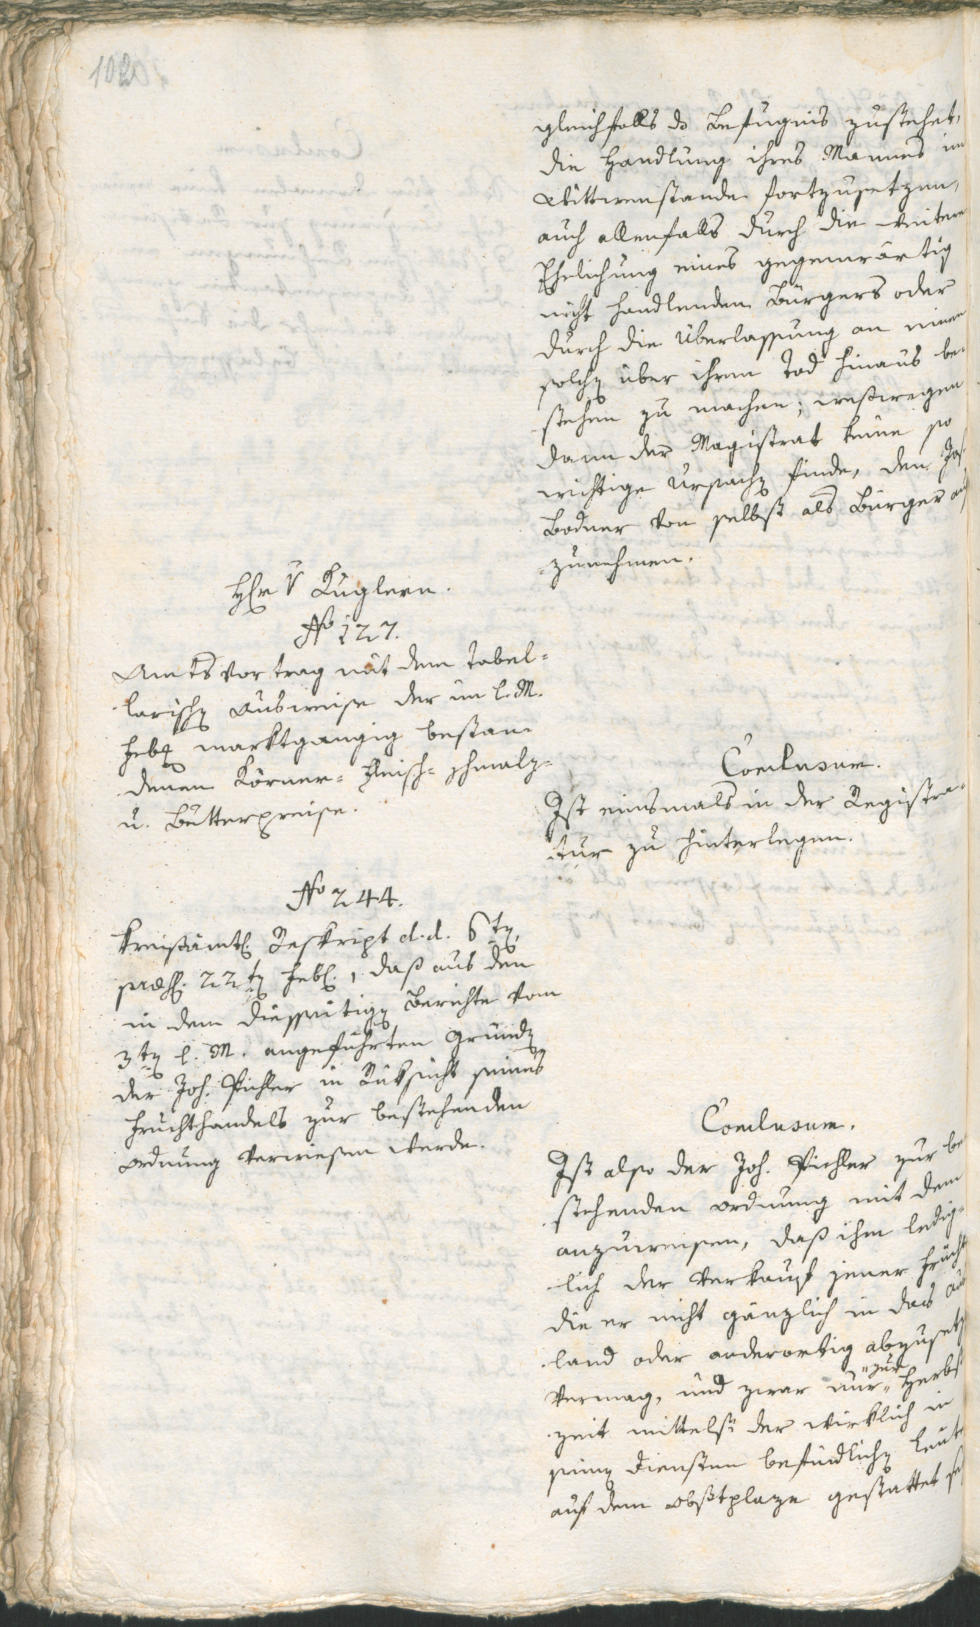 102
gleichfalls ds Befugnis zustehet,
die Handlung ihres Mannes im
Wittwenstande fortzusetzen,
auch allenfalls durch die weitere
Ehelichung eines gegenwärtig
nicht handlenden Bürgers oder
durch die Überlassung an einen
solchen über ihren Tod hinaus be-
stehen zu machen; weßwegen
dann der Magistrat keine so
wichtige Ursache finde, den Jos.
Bodner von selbst als Bürger auf
zunehmen.
Hr v Kuglern.
No 127.
Amts Vortrag mit dem tabel-
larischen Ausweise der im l. M.
Feb. marktgängig bestan-
denen Körner- Fleisch- schmalz-
u. Butterpreise.
Conclusum.
Ist einsmals in der Registra-
tur zu hinterlegen.
No 244.
Kreisämtl. Reskript d.d. 6ten
præs. 22ten Feb., daß aus den
in dem diesseitigen Berichte vom
3ten l. M. angeführten Gründen
der Joh. Pichler in Rüksicht seines
Fruchthandels zur bestehenden
Ordnung verwiesen werde.
Conclusum.
Ist also der Joh. Pichler zur be
stehenden Ordnung mit dem
anzuweisen, daß ihm ledig-
lich der Verkauf jener Früchte
die er nicht gänzlich in das Aus
land oder anderortig abzusetzen
vermag, und zwar nur "zur" Herbst
zeit mittelst der wirklich in
seinen Diensten befindlichen Leute
auf dem Obstplaze gestattet sey